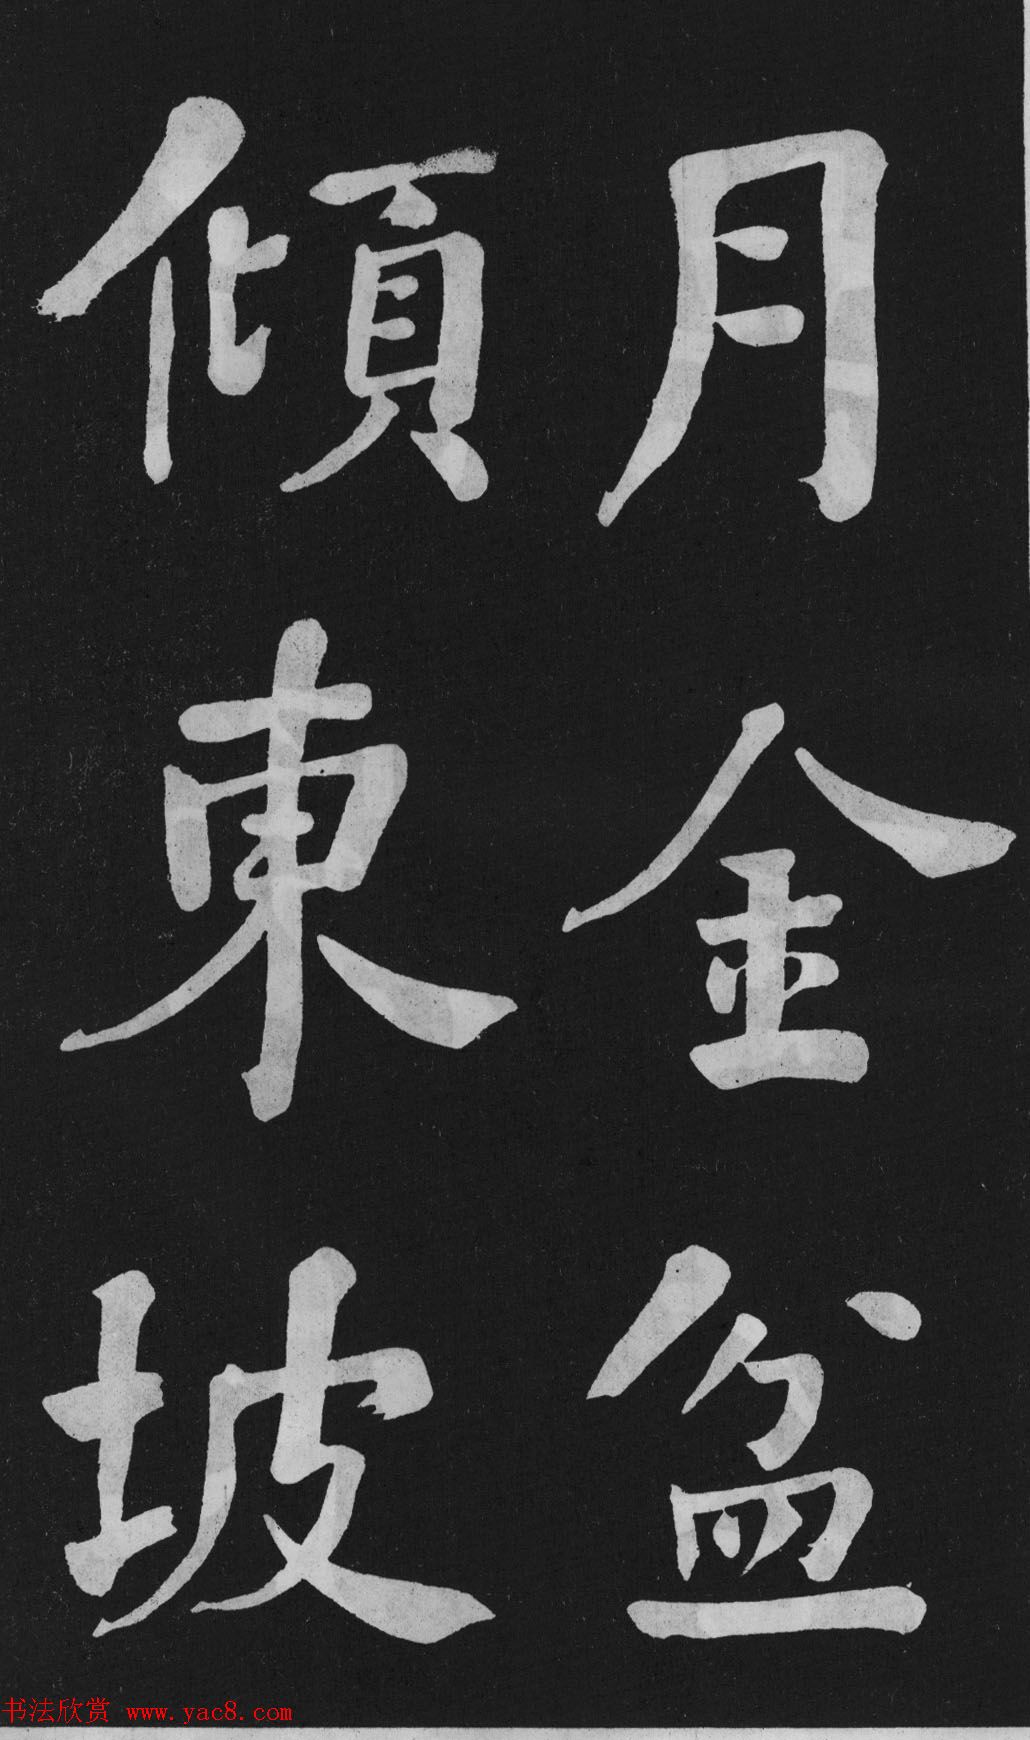 月金盆
傾東坡
书法欣赏 www.yac8.com